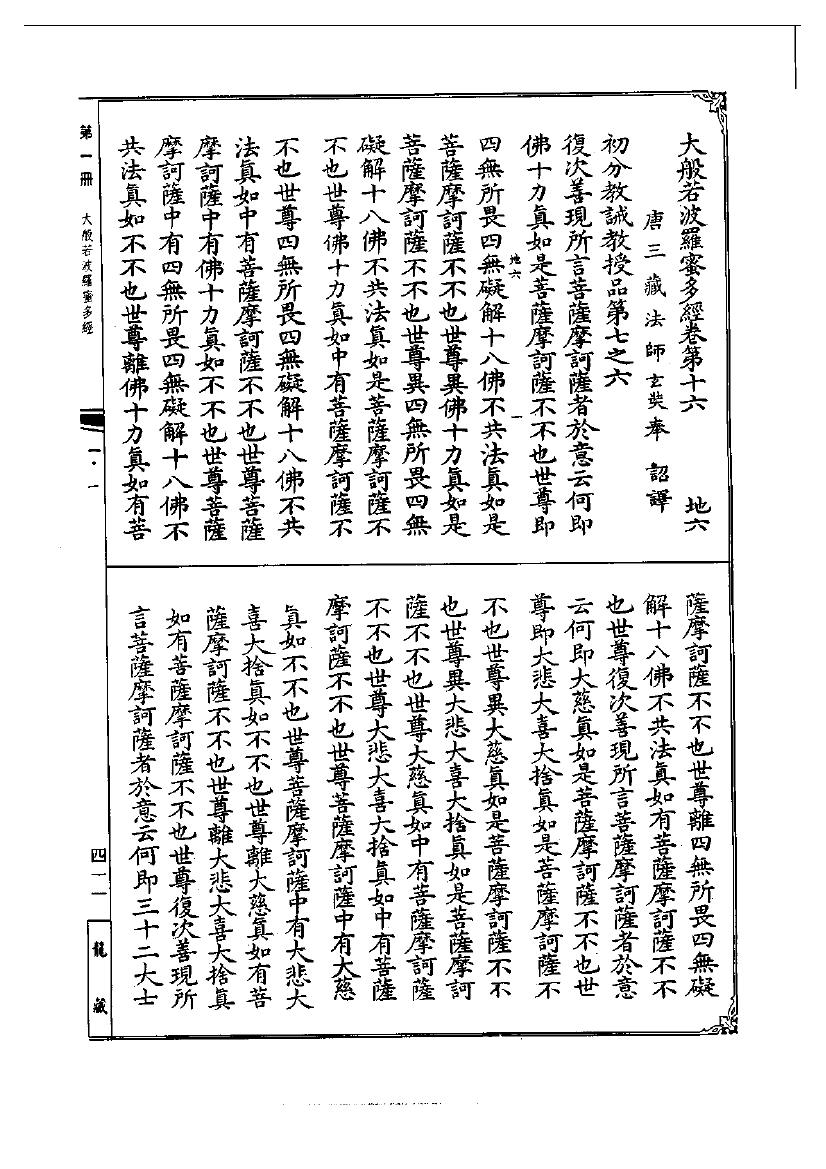 大般若波羅蜜多經卷第十六　地六
唐三藏法師玄奘奉　詔譯
初分教誡教授品第七之六
復次善現所言菩薩摩訶薩者於意云何即
佛十力眞如是菩薩摩訶薩不不也世尊即
地六　一
四無所畏四無礙解十八佛不共法眞如是
菩薩摩訶薩不不也世尊異佛十力眞如是
菩薩摩訶薩不不也世尊異四無所畏四無
礙解十八佛不共法眞如是菩薩摩訶薩不
不也世尊佛十力眞如中有菩薩摩訶薩不
不也世尊四無所畏四無礙解十八佛不共
法眞如中有菩薩摩訶薩不不也世尊菩薩
摩訶薩中有佛十力眞如不不也世尊菩薩
摩訶薩中有四無所畏四無礙解十八佛不
共法眞如不不也世尊離佛十力眞如有菩
薩摩訶薩不不也世尊離四無所畏四無礙
解十八佛不共法眞如有菩薩摩訶薩不不
也世尊復次善現所言菩薩摩訶薩者於意
云何即大慈眞如是菩薩摩訶薩不不也世
尊即大悲大喜大捨眞如是菩薩摩訶薩不
不也世尊異大慈眞如是菩薩摩訶薩不不
也世尊異大悲大喜大捨眞如是菩薩摩訶
薩不不也世尊大慈眞如中有菩薩摩訶薩
不不也世尊大悲大喜大捨眞如中有菩薩
摩訶薩不不也世尊菩薩摩訶薩中有大慈
眞如不不也世尊菩薩摩訶薩中有大悲大
喜大捨眞如不不也世尊離大慈眞如有菩
薩摩訶薩不不也世尊離大悲大喜大捨眞
如有菩薩摩訶薩不不也世尊復次善現所
言菩薩摩訶薩者於意云何即三十二大士
第一冊　大般若波羅蜜多經
一·一
四一一
龍藏